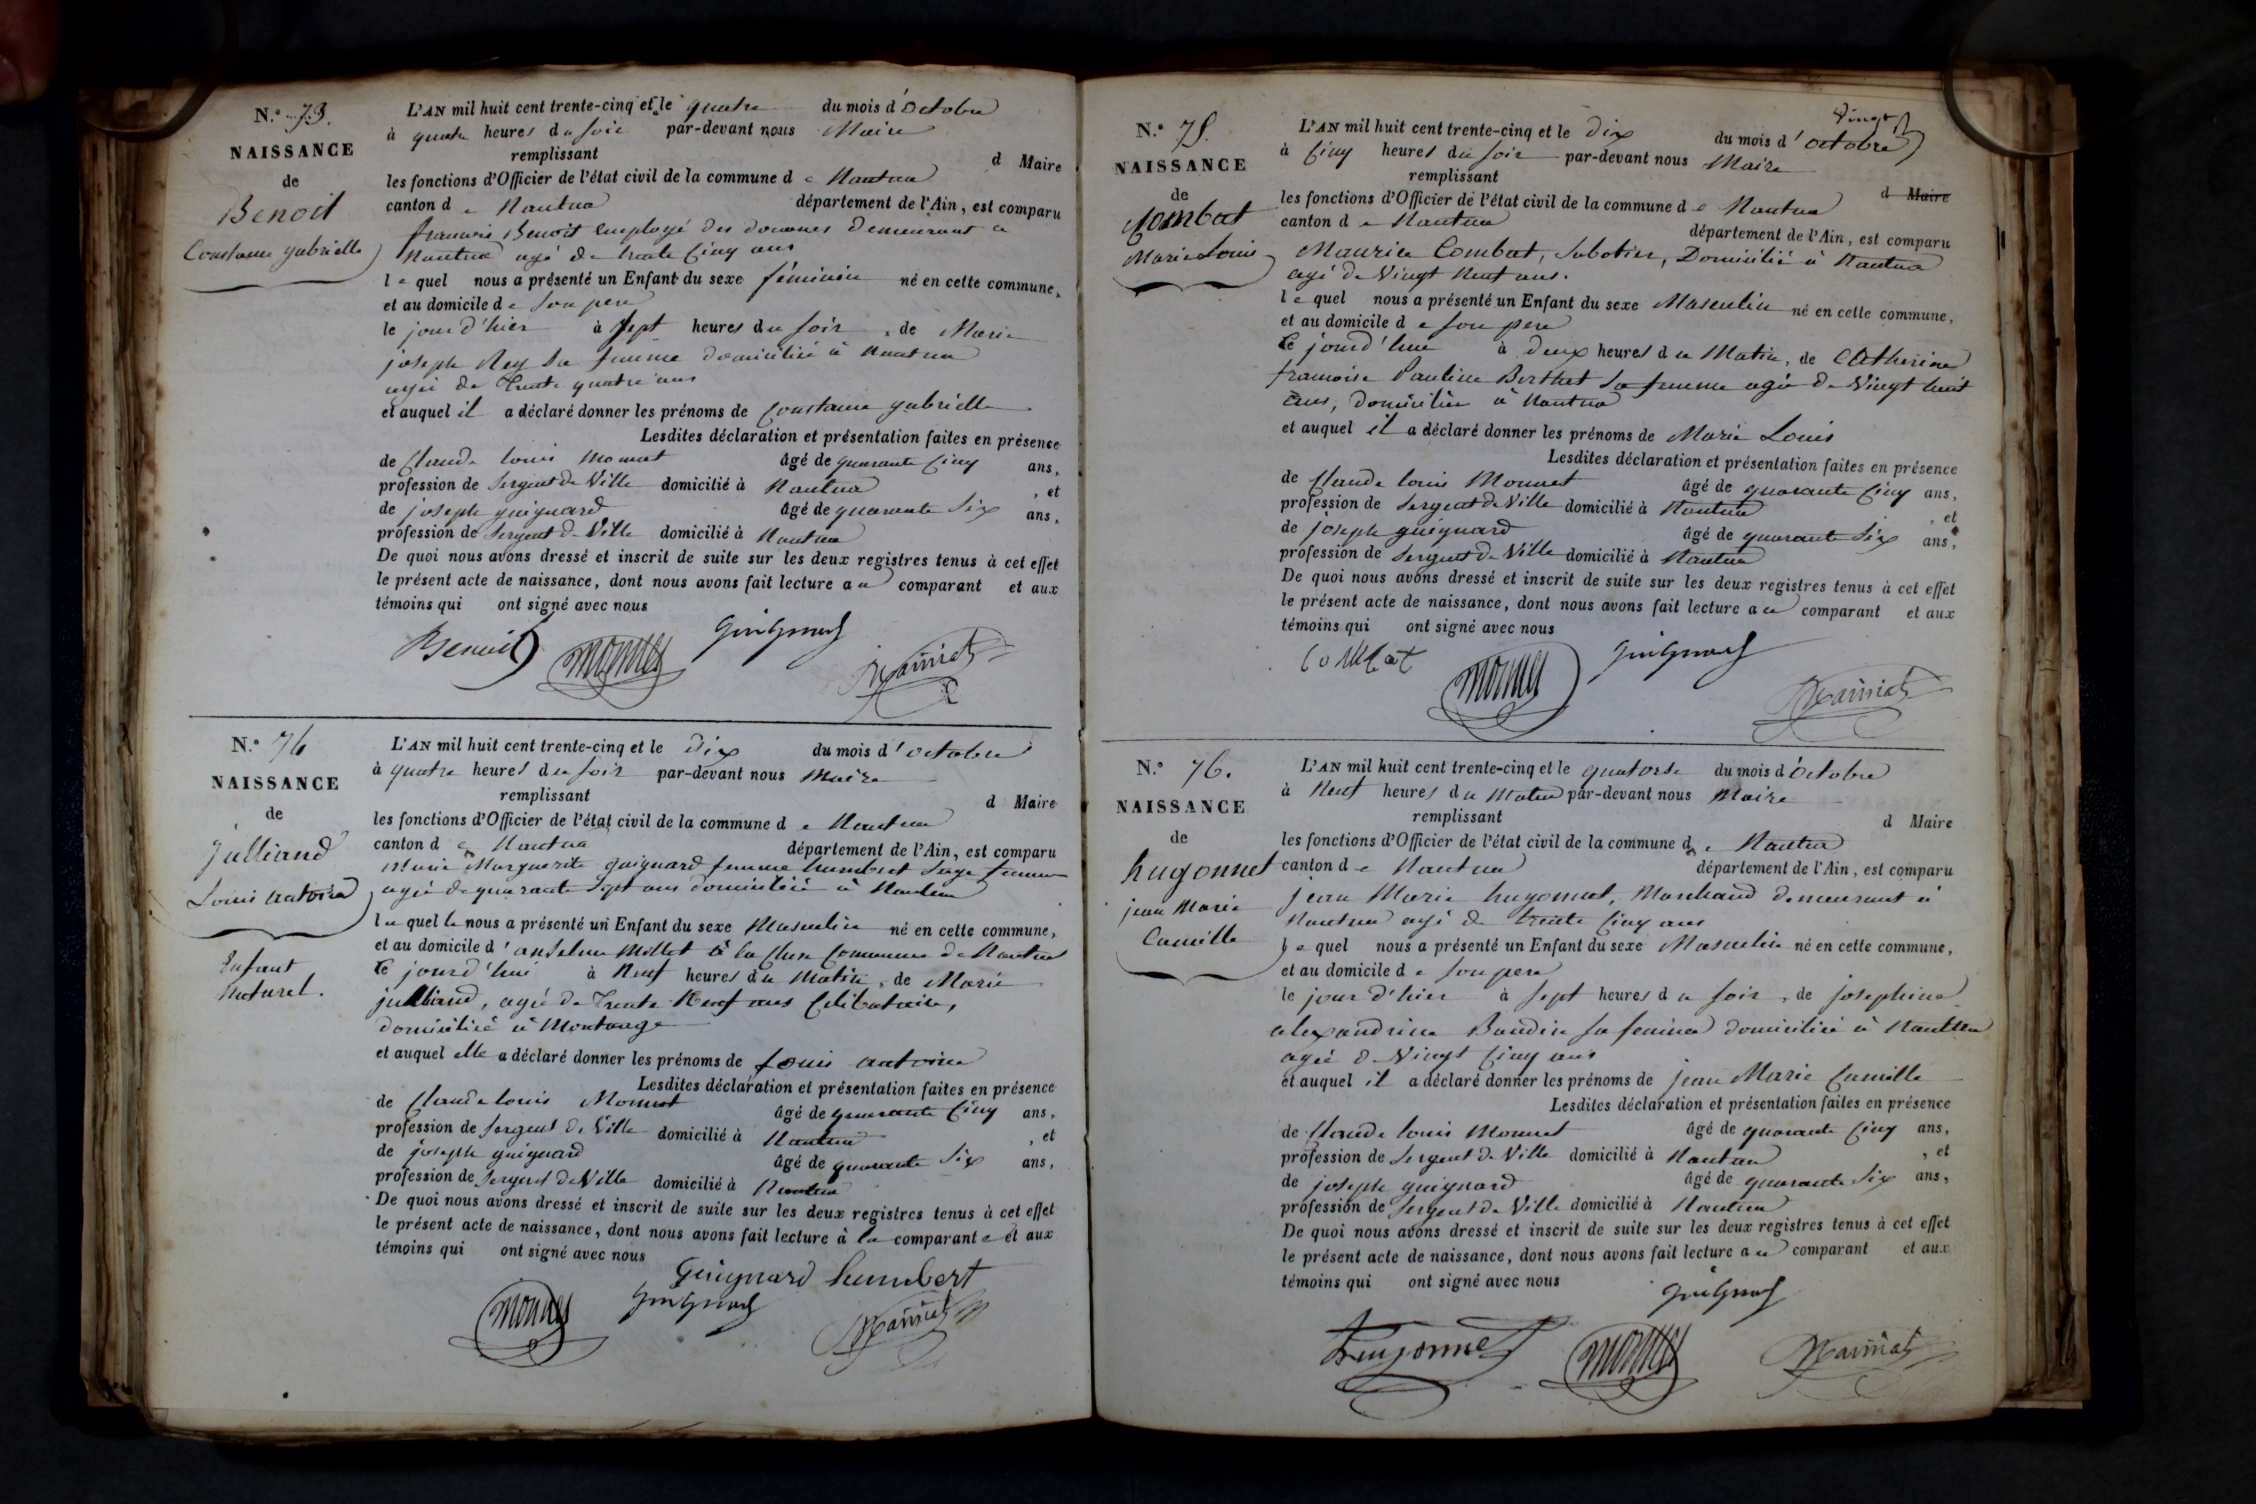 N.º 73.
NAISSANCE
de
Benoit
Constance gabrielle
L'AN mil huit cent trente-cinq et le quatre du mois d'octobre
à quatre heures du soir par-devant nous Maire
remplissant d Maire
les fonctions d'Officier de l'état civil de la commune de Nantua
canton de Nantua département de l'Ain, est comparu
francois Benoit employé des douanes demeurant a
Nantua agé de trente cinq ans
lequel nous a présenté un Enfant du sexe féminin né en cette commune,
et au domicile de son pere
le jour d'hier à sept heures du soir, de Marie
joseph Rey sa femme domiciliée à Nantua
agée de trente quatre ans
et auquel il a déclaré donner les prénoms de Constance gabrielle
Lesdites déclaration et présentation faites en présence
de Claude louis Monnet âgé de quarante cinq ans,
profession de Sergent de Ville domicilié à Nantua, et
de joseph guignard âgé de quarante six ans,
profession de Sergent de Ville domicilié à Nantua
De quoi nous avons dressé et inscrit de suite sur les deux registres tenus à cet effet
le présent acte de naissance, dont nous avons fait lecture au comparant et aux
témoins qui ont signé avec nous
Benoit Monnet Guignard
N.º 74
NAISSANCE
de
julliand
Louis antoine
Enfant
Naturel.
L'AN mil huit cent trente-cinq et le dix du mois d'octobre
à quatre heures du soir par-devant nous Maire
remplissant d Maire
les fonctions d'Officier de l'état civil de la commune de Nantua
canton de Nantua département de l'Ain, est comparu
Marie Marguerite guignard femme humbert Sage femme
agée de quarante sept ans domiciliée à Nantua
laquelle nous a présenté un Enfant du sexe Masculin né en cette commune,
et au domicile d'anselme Millet à la Commune de Nantua
Ce jourd'hui à Neuf heures du Matin, de Marie
julliand, agée de trente Neuf ans Célibataire,
domiciliée à Montange
et auquel elle a déclaré donner les prénoms de Louis antoine
Lesdites déclaration et présentation faites en présence
de Claude louis Monnet âgé de quarante cinq ans,
profession de Sergent de Ville domicilié à Nantua, et
de joseph guignard âgé de quarante six ans,
profession de Sergent de Ville domicilié à Nantua
De quoi nous avons dressé et inscrit de suite sur les deux registres tenus à cet effet
le présent acte de naissance, dont nous avons fait lecture à la comparante et aux
témoins qui ont signé avec nous
Guignard humbert
Monnet Guignard
Vingt
N.º 75.
NAISSANCE
de
Combat
Marie Louis
L'AN mil huit cent trente-cinq et le dix du mois d'octobre
à Cinq heures du soir par-devant nous Maire
remplissant d Maire
les fonctions d'Officier de l'état civil de la commune de Nantua
canton de Nantua département de l'Ain, est comparu
Maurice Combat, Sabotier, Domicilié à Nantua
agé de Vingt Neuf ans.
lequel nous a présenté un Enfant du sexe Masculin né en cette commune,
et au domicile de son pere
Ce jourd'hui à deux heures du Matin, de Catherine
francoise Pauline Berthet sa femme agée de Vingt huit
ans, domiciliée à Nantua
et auquel il a déclaré donner les prénoms de Marie Louis
Lesdites déclaration et présentation faites en présence
de Claude louis Monnet âgé de quarante Cinq ans,
profession de Sergent de Ville domicilié à Nantua, et
de joseph guignard âgé de quarante six ans,
profession de Sergent de Ville domicilié à Nantua
De quoi nous avons dressé et inscrit de suite sur les deux registres tenus à cet effet
le présent acte de naissance, dont nous avons fait lecture au comparant et aux
témoins qui ont signé avec nous
Combat Monnet Guignard
N.º 76.
NAISSANCE
de
hugonnet
jean Marie
Camille
L'AN mil huit cent trente-cinq et le quatorse du mois d'octobre
à Neuf heures du Matin par-devant nous Maire
remplissant d Maire
les fonctions d'Officier de l'état civil de la commune de Nantua
canton de Nantua département de l'Ain, est comparu
jean Marie hugonnet, Marchand demeurant à
Nantua agé de trente Cinq ans
lequel nous a présenté un Enfant du sexe Masculin né en cette commune,
et au domicile de son pere
le jour d'hier à sept heures du soir, de josephine
alexandrine Baudin sa femme domiciliée à Nantua
agée de Vingt Cinq ans
et auquel il a déclaré donner les prénoms de jean Marie Camille
Lesdites déclaration et présentation faites en présence
de Claude louis Monnet âgé de quarante Cinq ans,
profession de Sergent de Ville domicilié à Nantua, et
de joseph guignard âgé de quarante six ans,
profession de Sergent de Ville domicilié à Nantua
De quoi nous avons dressé et inscrit de suite sur les deux registres tenus à cet effet
le présent acte de naissance, dont nous avons fait lecture au comparant et aux
témoins qui ont signé avec nous
Guignard
hugonnet Monnet